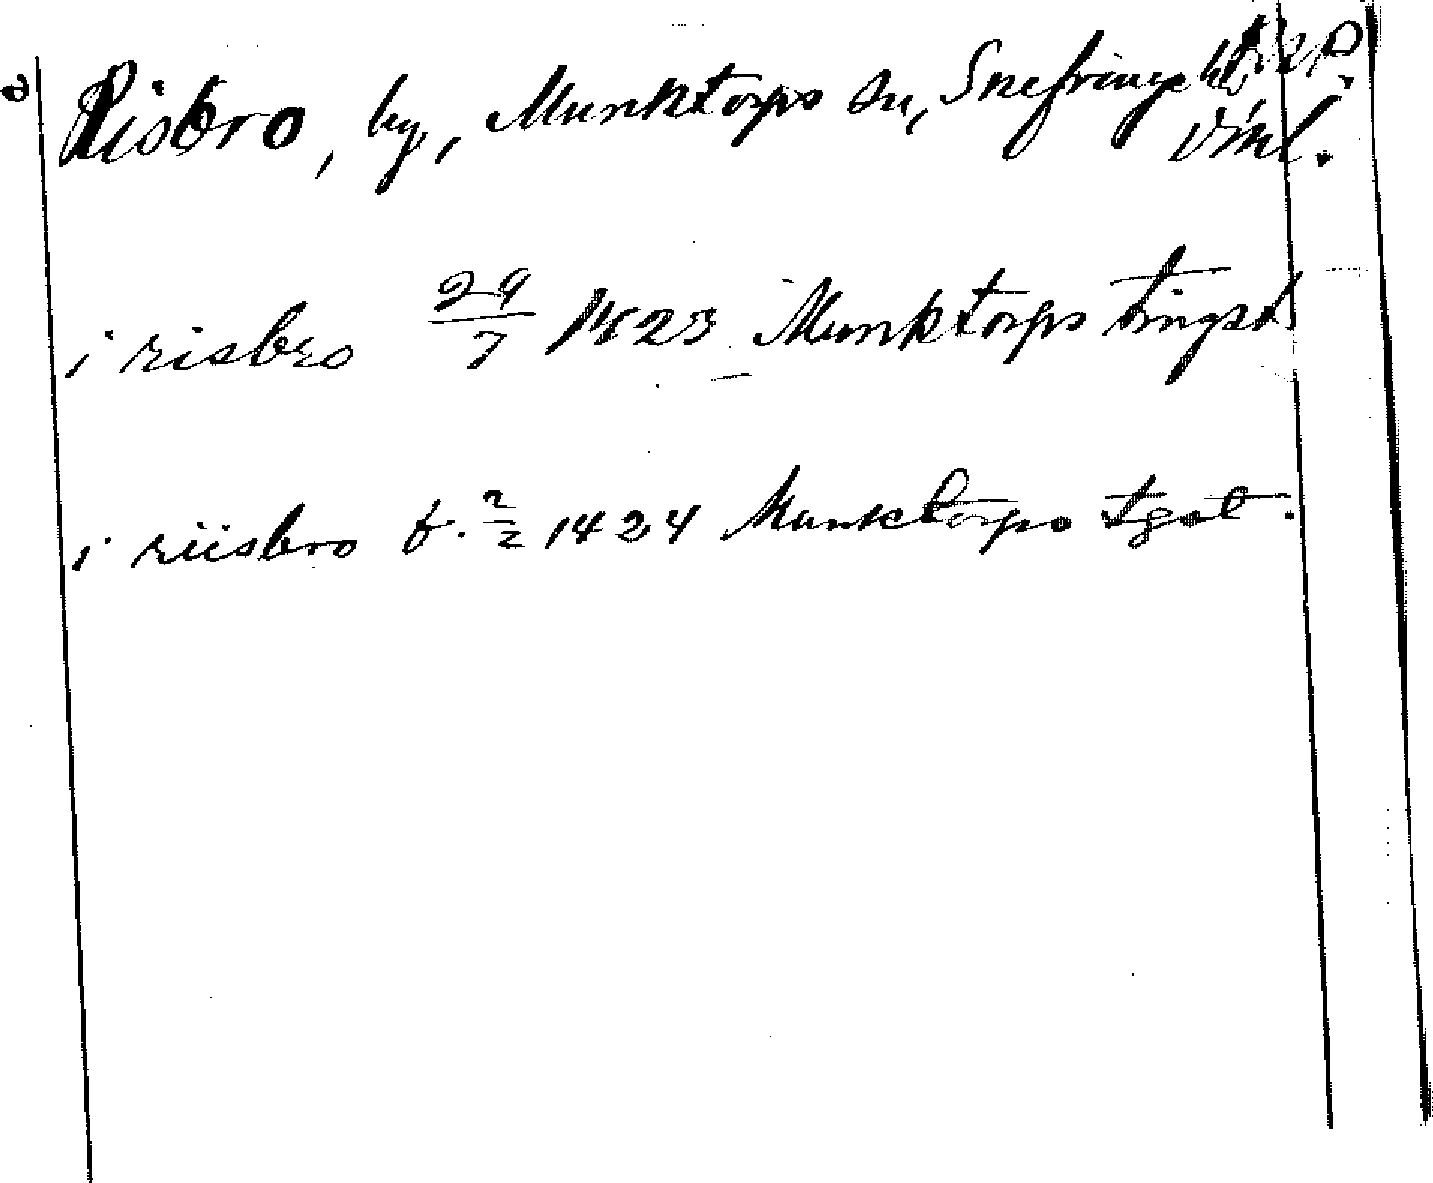 Risbro, by, Munktorps sn, Snefringe hd
Vml.
i risbro 29/7 1423 Munktorps tingst
i riisbro f. 2/2 1424 Munktorps tgst.